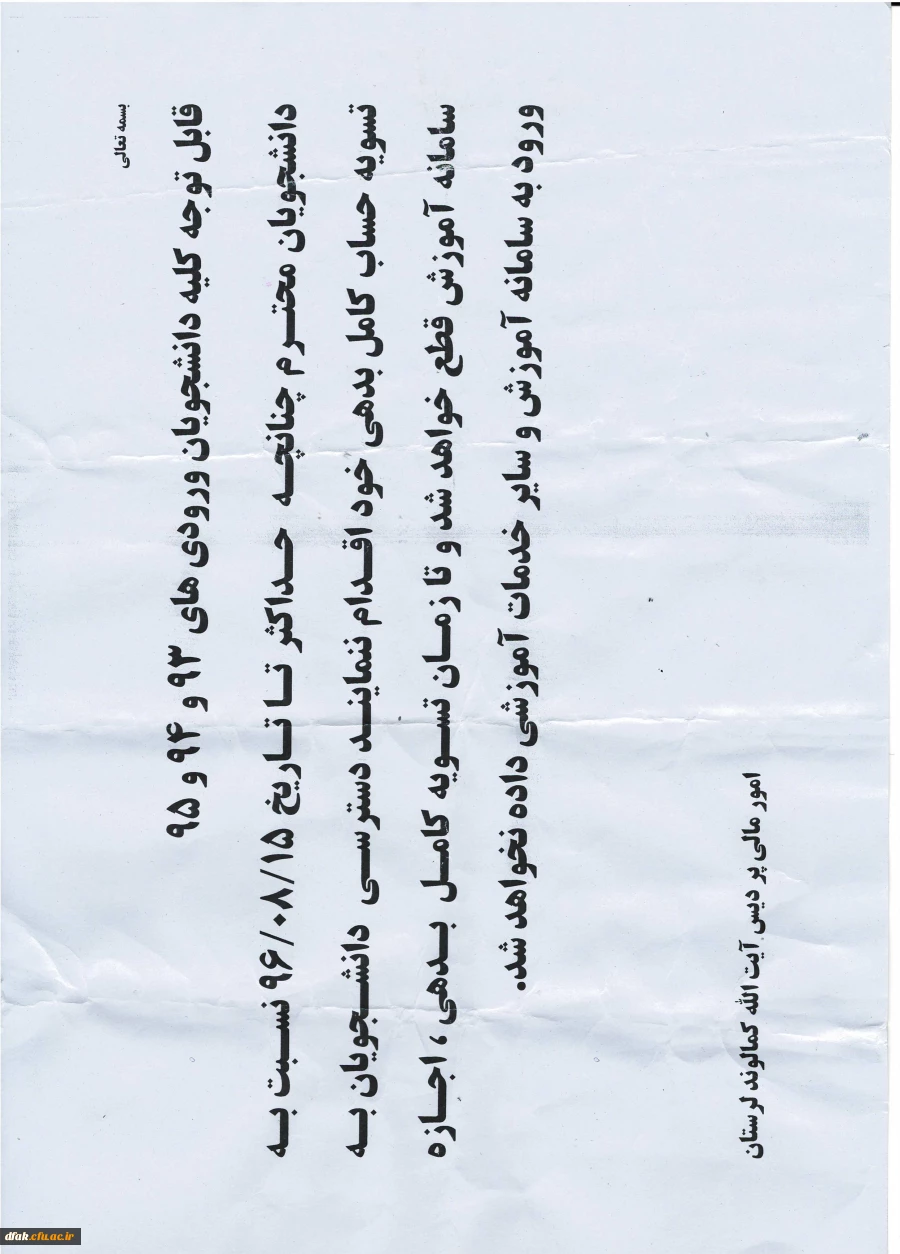 بسمه تعالی
قابل توجه کلیه دانشجویان ورودی های ۹۳ و ۹۴ و ۹۵
دانشجویان محترم چنانچه حداکثر تا تاریخ ۹۶/۰۸/۱۵ نسبت به
تسویه حساب کامل بدهی خود اقدام ننمایند دسترسی دانشجویان به
سامانه آموزش قطع خواهد شد و تا زمان تسویه کامل بدهی ، اجازه
ورود به سامانه آموزش و سایر خدمات آموزشی داده نخواهد شد.
امور مالی پردیس آیت الله کمالوند لرستان
dfak.cfu.ac.ir